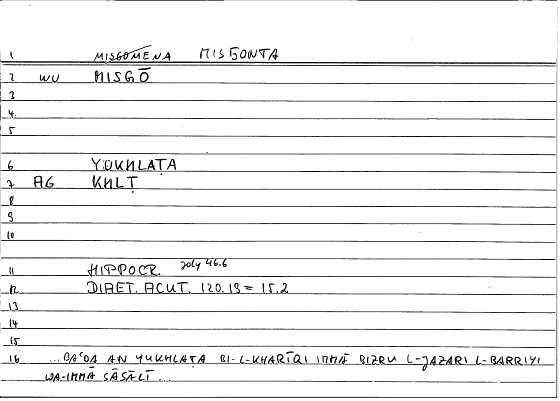 1 MISGOMENA MISGONTA
2 WU MISGŌ
3
4
5
6 YUKHLAṬA
7 AG KHLṬ
8
9
10
11 HIPPOCR. Joly 46.6
12 DIAET. ACUT. 120.19 = 15.2
13
14
15
16 ...BAʿDA AN YUKHLAṬA BI-L-KHARĪQI IMMĀ BIZRU L-JAZARI L-BARRIYI
WA-IMMĀ SĀSĀLĪ...